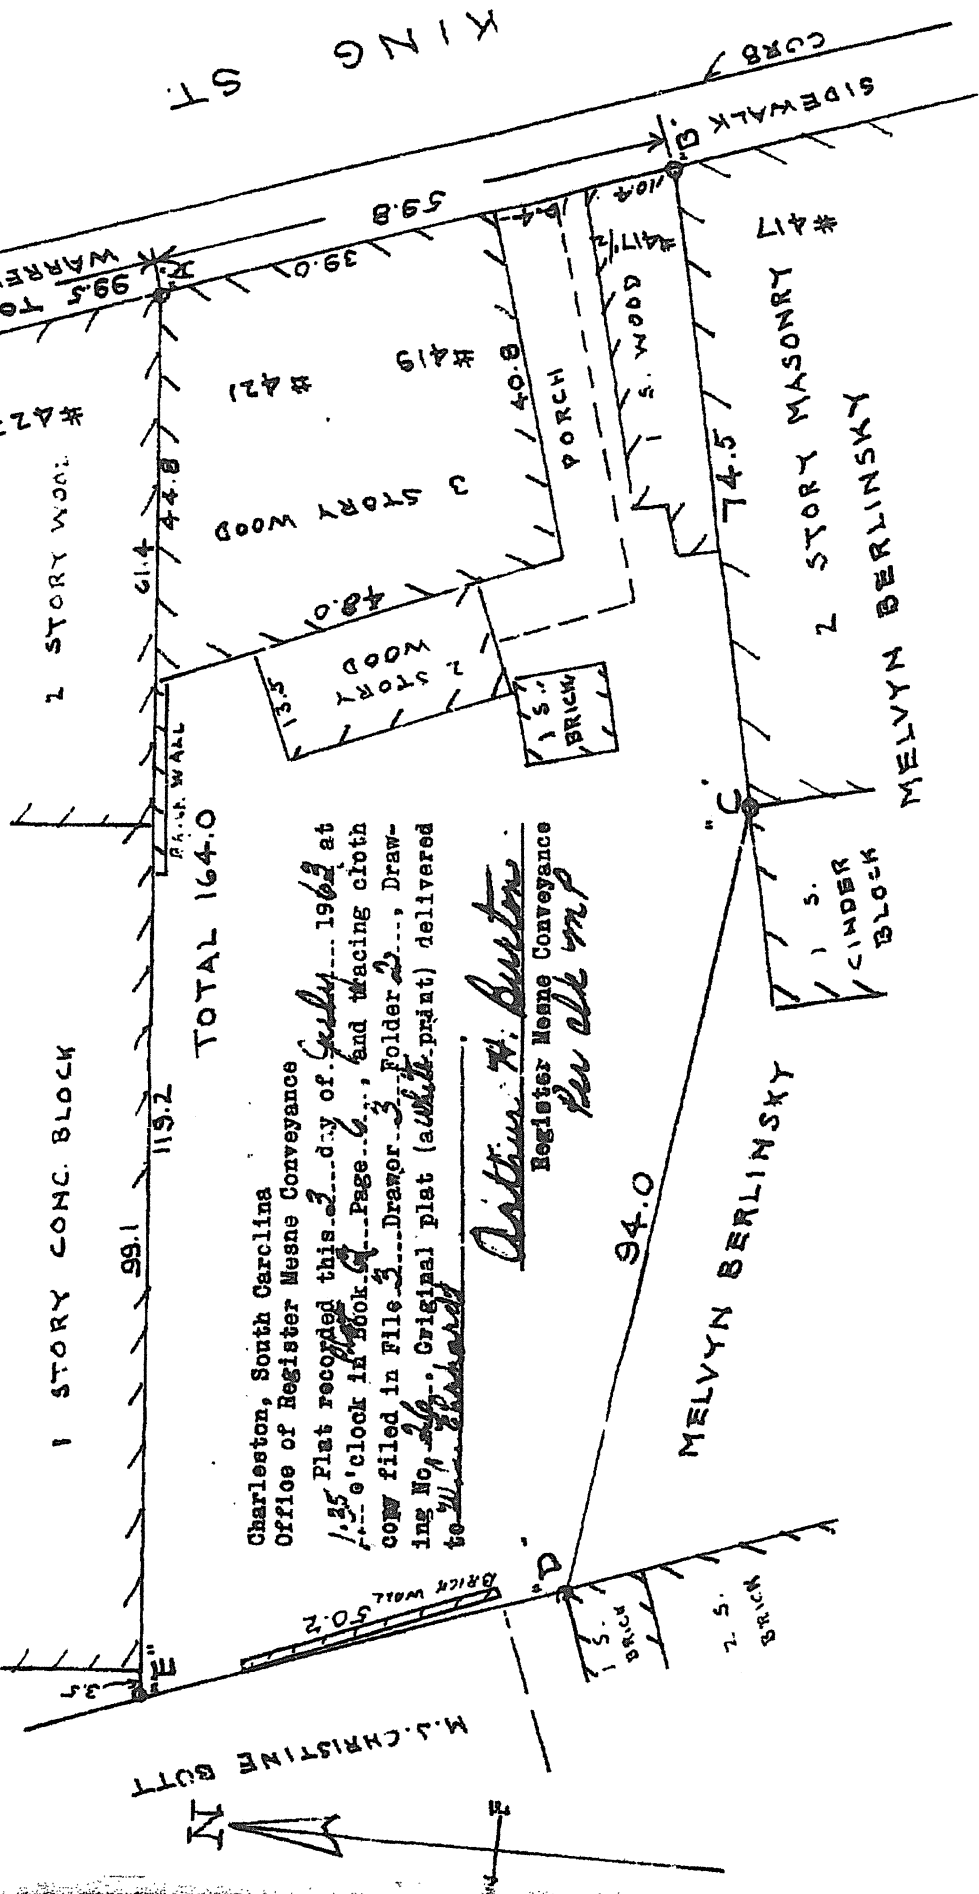 KING ST.
CURB
SIDEWALK
TO WARRE
99.5
"A"
59.8
"B"
39.0
10.4
#417 1/2
#417
#419
#421
40.8
PORCH
1 S. WOOD
74.5
2 STORY MASONRY
MELVYN BERLINSKY
3 STORY WOOD
44.8
61.4
2 STORY WOO
48.0
13.5
2 STORY
WOOD
1 S.
BRICK
WALL
"C"
1 S.
CINDER
BLOCK
TOTAL 164.0
1 STORY CONC. BLOCK
119.2
99.1
Charleston, South Carolina
Office of Register Mesne Conveyance
Plat recorded this 3 day of July 1963 at
1:35 o'clock in Plat Book Page 6, and tracing cloth
copy filed in File 3 Drawer 3 Folder 2, Draw-
ing No. 26. Original plat (a White print) delivered
to Wm. Ehrhardt.
Arthur H. Burton
Register Mesne Conveyance
Per clk mp
94.0
MELVYN BERLINSKY
"D"
BRICK WALL
50.2
1 S.
BRICK
2 S.
BRICK
"E"
M.J. CHRISTINE BUTT
N
E